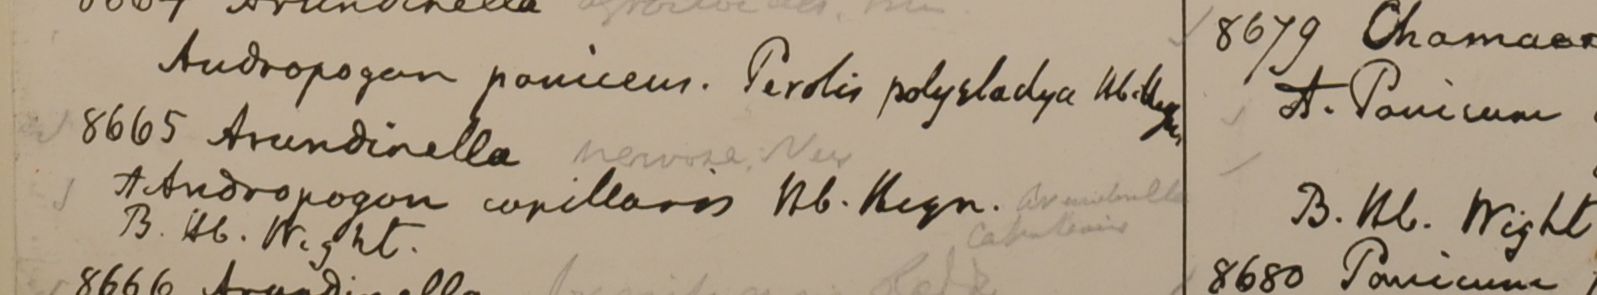 8664 Arundinella
Andropogon paniceus. Perotis polystachya Hb. Heyn.
8665 Arundinella nervosa. Nees
A Andropogon capillaris Hb. Heyn. Arundinella
B. Hb. Wight.
8666 Arundinella
8679
A. Panicum
B. Hb. Wight
8680 Panicum